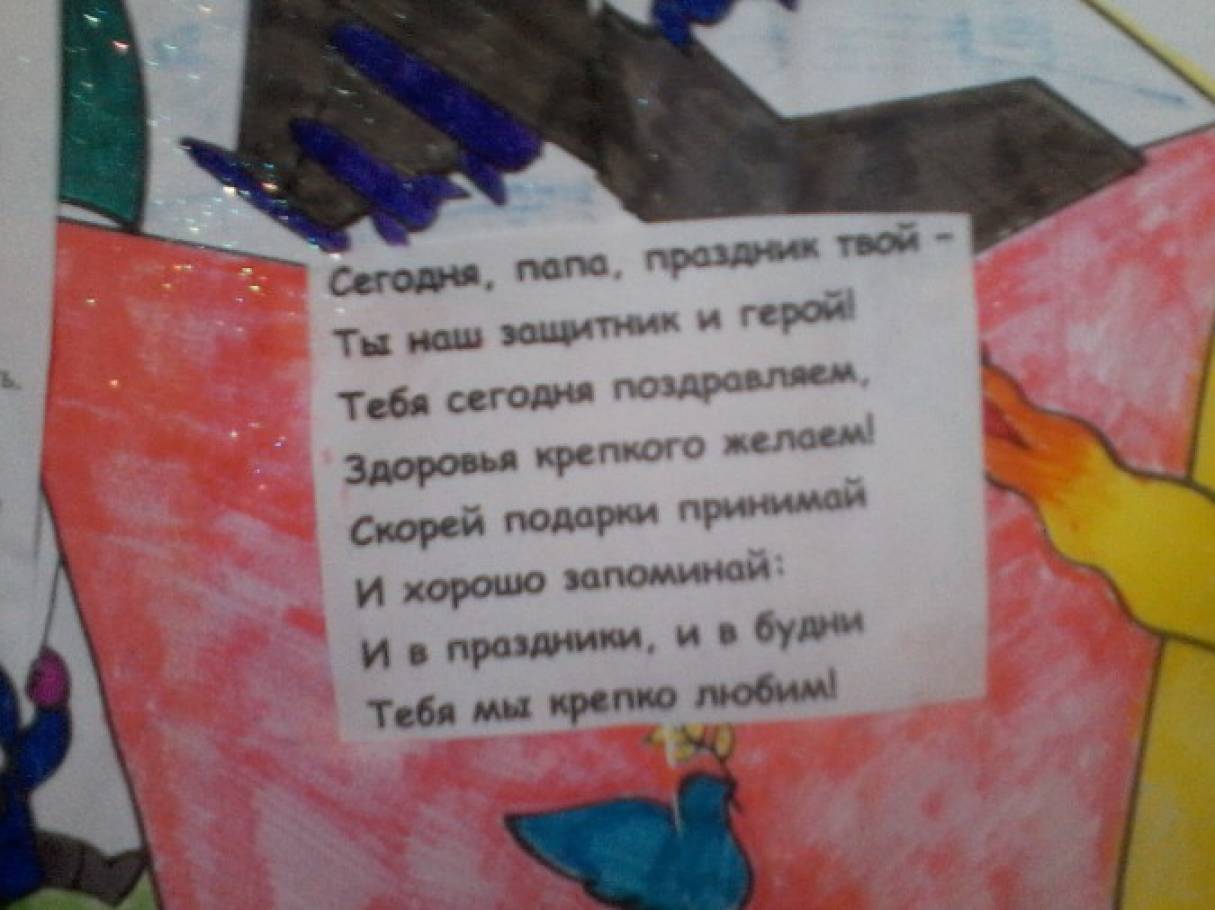 Сегодня, папа, праздник твой -
Ты наш защитник и герой!
Тебя сегодня поздравляем,
Здоровья крепкого желаем!
Скорей подарки принимай
И хорошо запоминай:
И в праздники, и в будни
Тебя мы крепко любим!